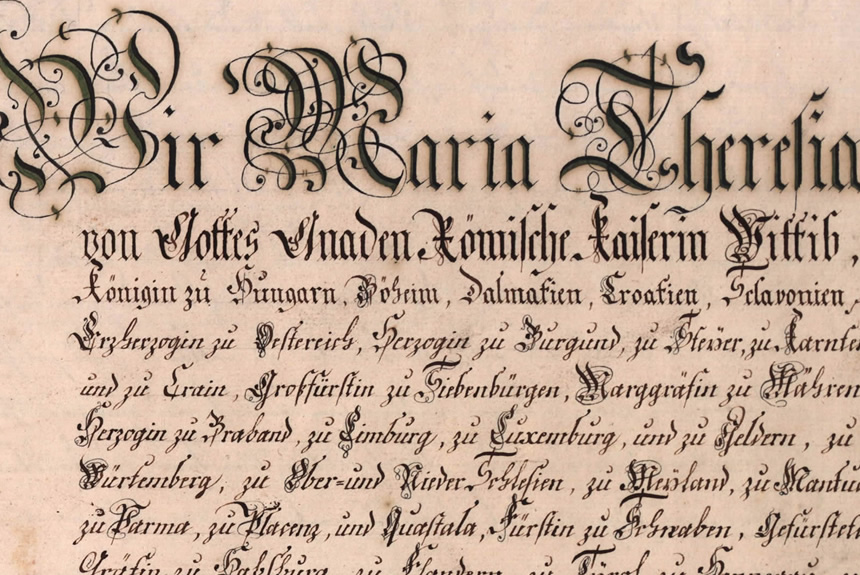 Wir Maria Theresia
von Gottes Gnaden Römische Kaiserin Wittib,
Königin zu Hungarn, Böheim, Dalmatien, Croatien, Sclavonien,
Erzherzogin zu Oestereich, Herzogin zu Burgund, zu Steyer, zu
und zu Crain, Großfürstin zu Siebenbürgen, Marggräfin zu Mähren
Herzogin zu Braband, zu Limburg, zu Luxemburg, und zu Geldern, zu
Würtemberg, zu Ober- und Nieder Schlesien, zu Meyland, zu
zu Parma, zu Placenz, und Quastala, Fürstin zu Schwaben,
Gräfin zu Habsburg, zu Flandern, zu Tyrol, zu